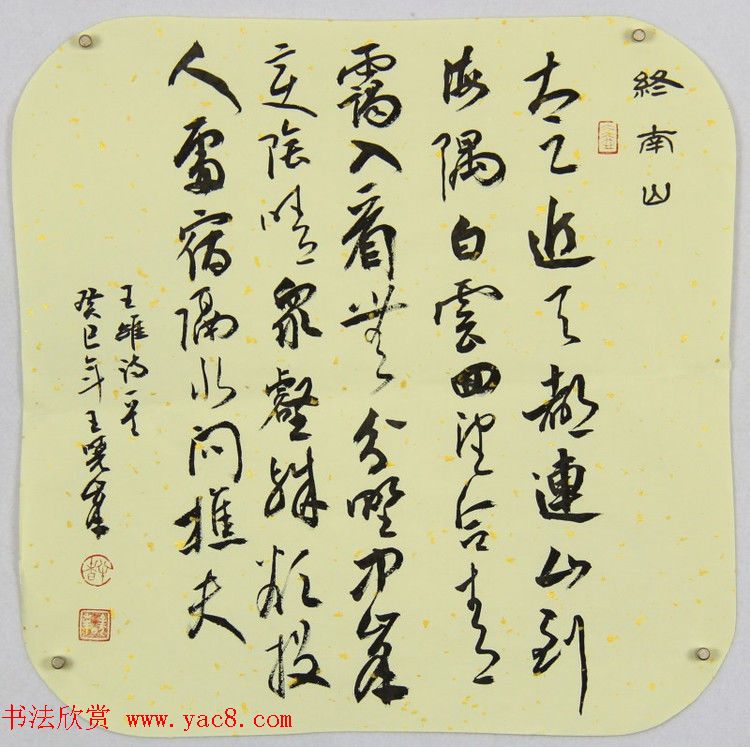 終南山
太乙近天都連山到
海隅白雲回望合青
靄入看無分野中峯
變陰晴衆壑殊欲投
人處宿隔水問樵夫
王維詩一首
癸巳年王曉
书法欣赏 www.yac8.com